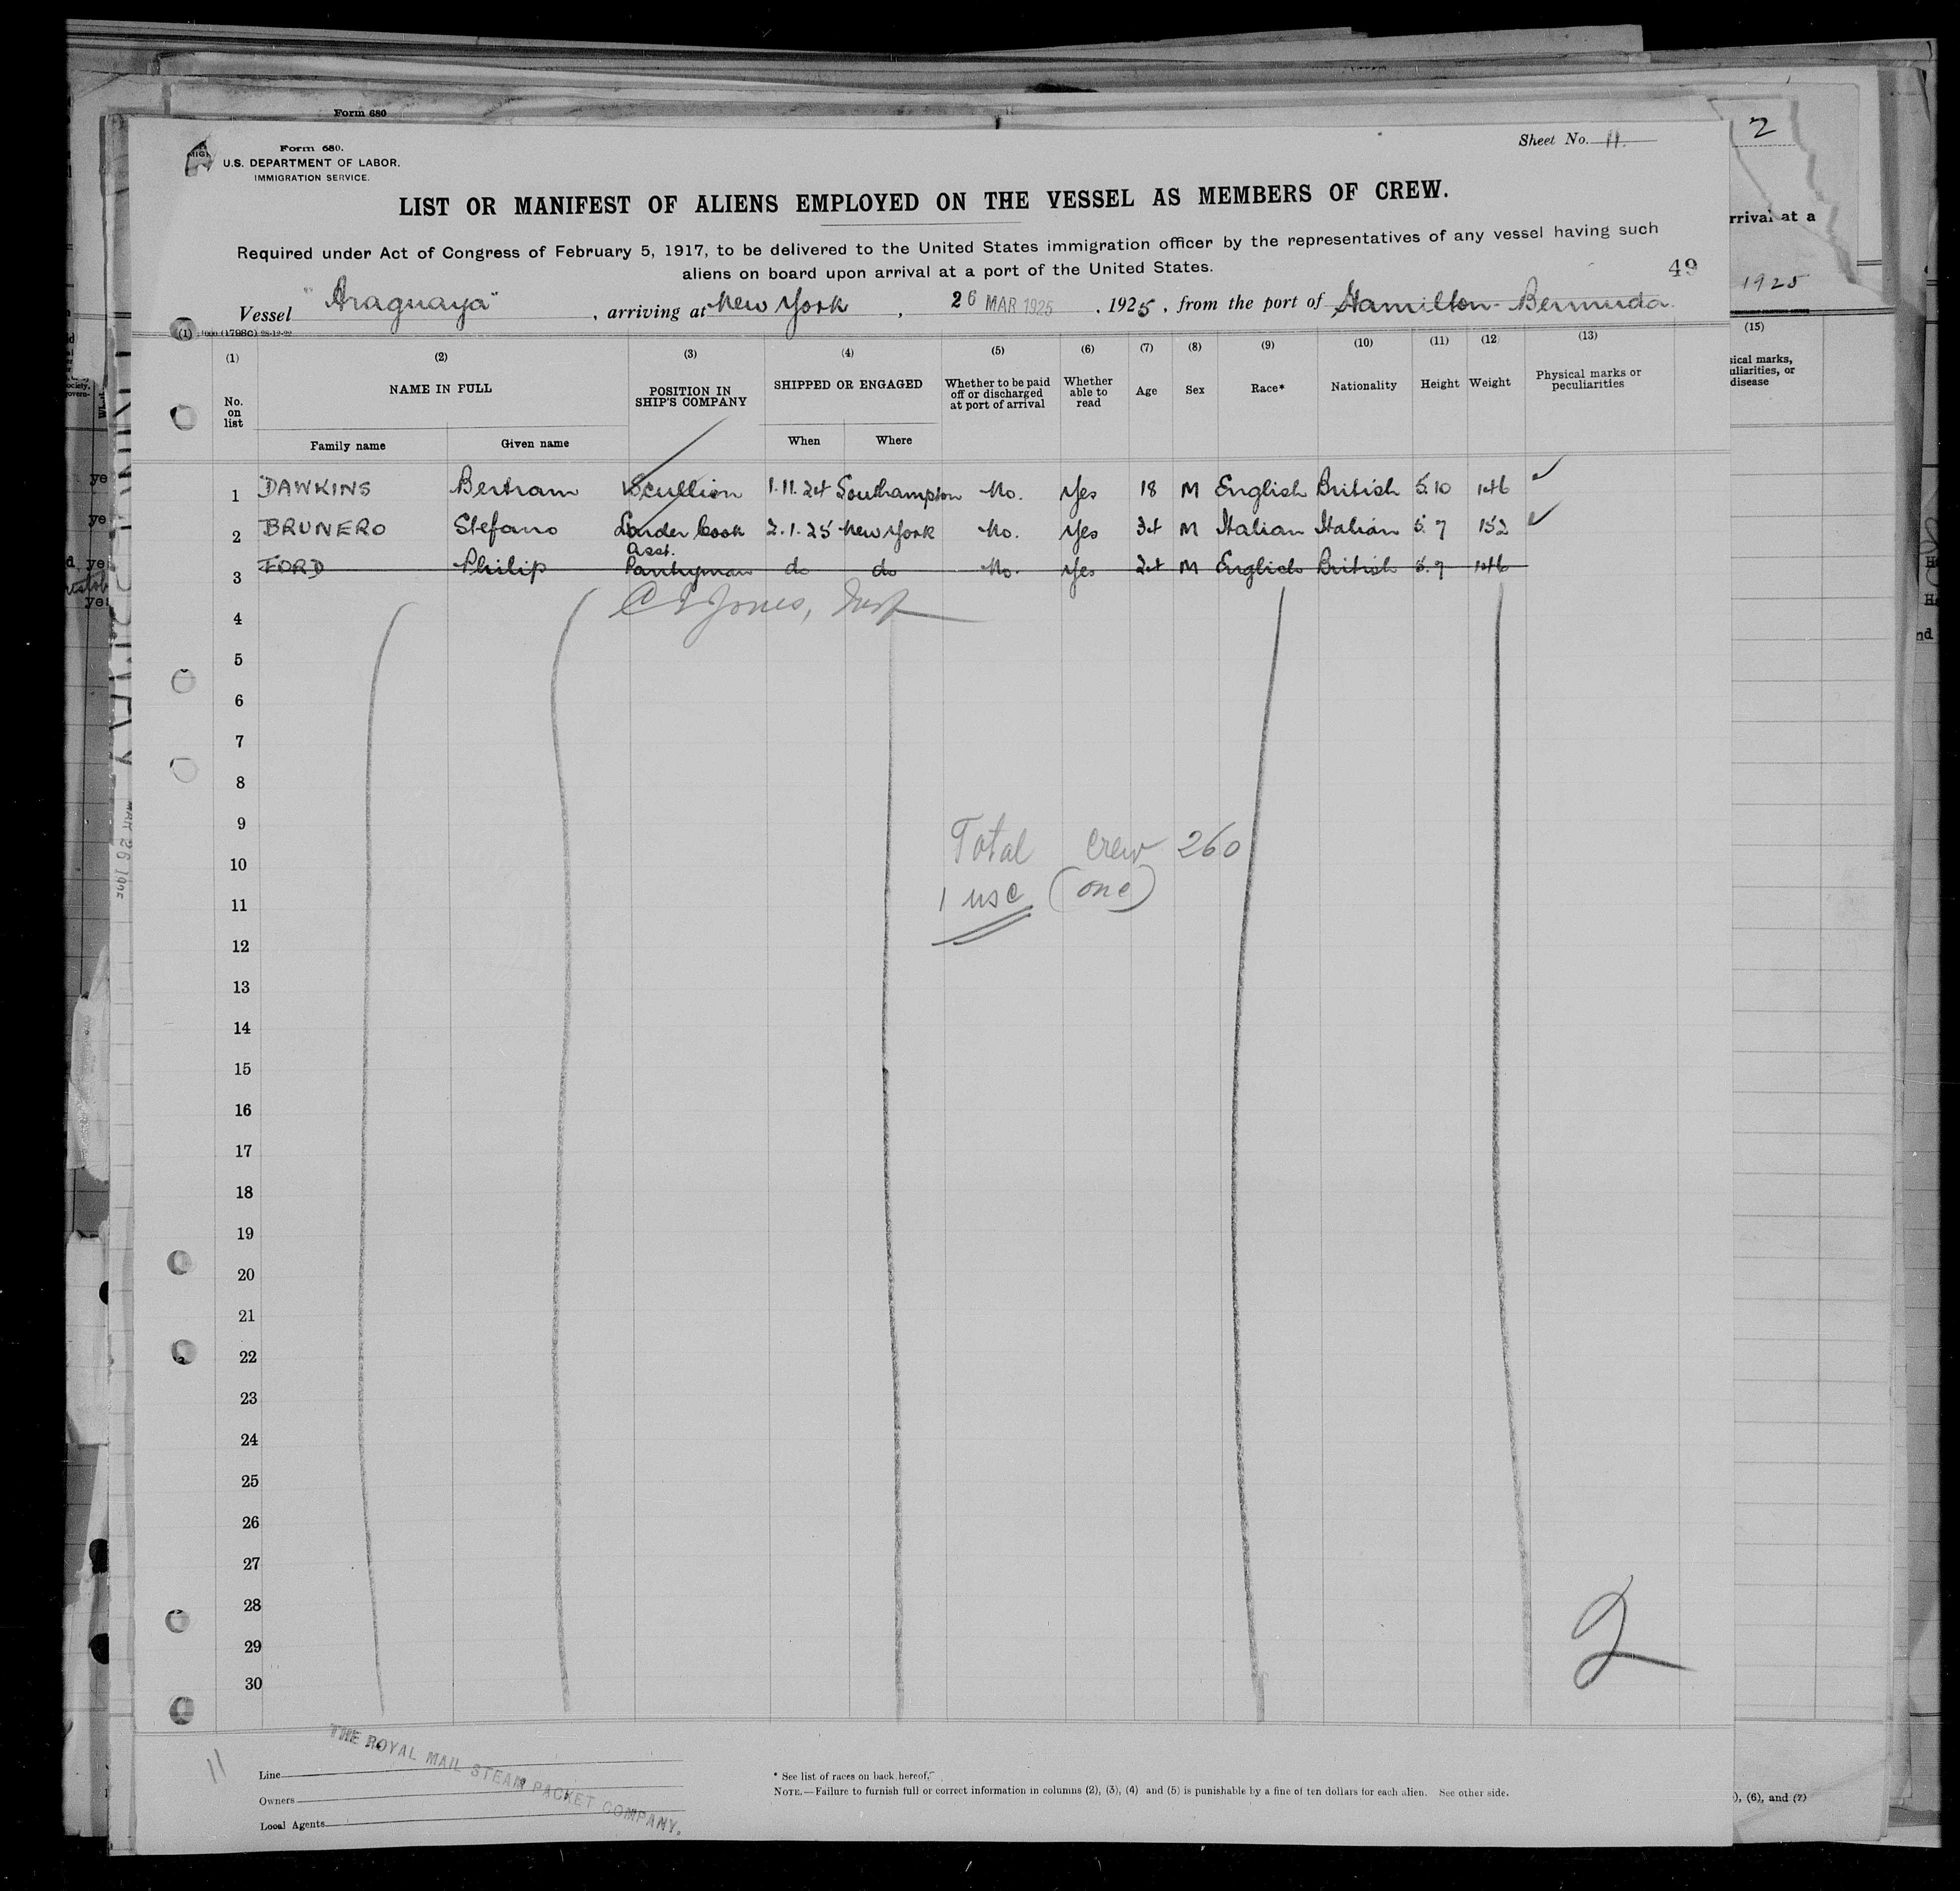 Form 680
2
Form 680.
U.S. DEPARTMENT OF LABOR.
IMMIGRATION SERVICE.
Sheet No. 11.
LIST OR MANIFEST OF ALIENS EMPLOYED ON THE VESSEL AS MEMBERS OF CREW.
rrival at a
Required under Act of Congress of February 5, 1917, to be delivered to the United States immigration officer by the representatives of any vessel having such
aliens on board upon arrival at a port of the United States.
49
1925
Vessel "Araguaya", arriving at New York, 26 MAR 1925, 1925, from the port of Hamilton Bermuda.
(1) (2) (3) (4) (5) (6) (7) (8) (9) (10) (11) (12) (13) (15)
No. on list NAME IN FULL POSITION IN SHIP'S COMPANY SHIPPED OR ENGAGED Whether to be paid off or discharged at port of arrival Whether able to read Age Sex Race* Nationality Height Weight Physical marks or peculiarities
sical marks,
uliarities, or
disease
Family name Given name When Where
1 DAWKINS Bertram Scullion 1.11.24 Southampton No. Yes 18 M English British 5.10 146 ✓
2 BRUNERO Stefano Larder Cook 2.1.25 New York No. Yes 34 M Italian Italian 5.7 152 ✓
3 FORD Philip Asst. Pantryman do do No. Yes 24 M English British 5.7 146
4 Jones, Insp
5
6
7
8
9
10 Total crew 260
11 1 usc (one)
12
13
14
15
16
17
18
19
20
21
22
23
24
25
26
27
28
29
30
2
MAR 26
11
THE ROYAL MAIL STEAM PACKET COMPANY.
Line
Owners
Local Agents
* See list of races on back hereof.
NOTE.—Failure to furnish full or correct information in columns (2), (3), (4) and (5) is punishable by a fine of ten dollars for each alien. See other side.
), (6), and (7)